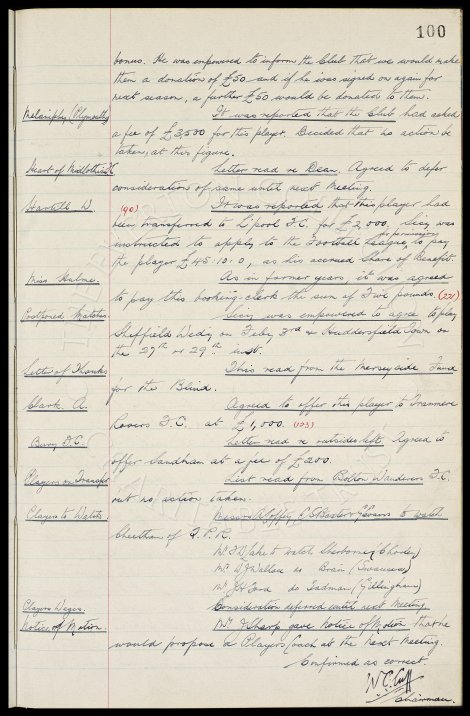 100
bonus. He was empowered to inform the Club that we would make
them a donation of £50 and if he was signed on again for
next season, a further £50 would be donated to them.
(Plymouth) It was reported that the Club had asked
a fee of £3,500 for this player. Decided that no action be
taken, at this figure.
Heart of Midlothian F.C. Letter read re Dean. Agreed to defer
consideration of same until next meeting.
Hartill W. (90) It was reported that this player had
been transferred to L'pool F.C. for £2,000. Secy was
instructed to apply to the Football League, for permission to pay
the player £45:10:0, as his accrued share of Benefit.
Miss Hulme. As in former years, it was agreed
to pay this booking-clerk the sum of Five pounds. (221)
Postponed Matches Secy was empowered to agree to play
Sheffield Wedny on Feby 3rd & Huddersfield Town on
the 27th or 29th inst.
Letter of Thanks This read from the Merseyside Fund
for the Blind.
Clark. A. Agreed to offer this player to Tranmere
Rovers F.C. at £1,000. (123)
Bury F.C. Letter read re outsides left. Agreed to
offer Sandham at a fee of £200.
Players on Transfer List read from Bolton Wanderers F.C.
but no action taken.
Players to Watch. Messrs A. Coffey, & Evans to watch
Cheetham of Q.P.R.
Mr to watch Sherborne (Chorley)
Mr W J Wallace do Brain (Swansea)
Mr do Tadman (Gillingham)
Players Wages. Consideration deferred until next Meeting.
Notice of Motion. Mr J Sharp gave Notice of Motion that he
would propose a Players Coach at the next Meeting.
Confirmed as correct
W. C. Cuff
Chairman.